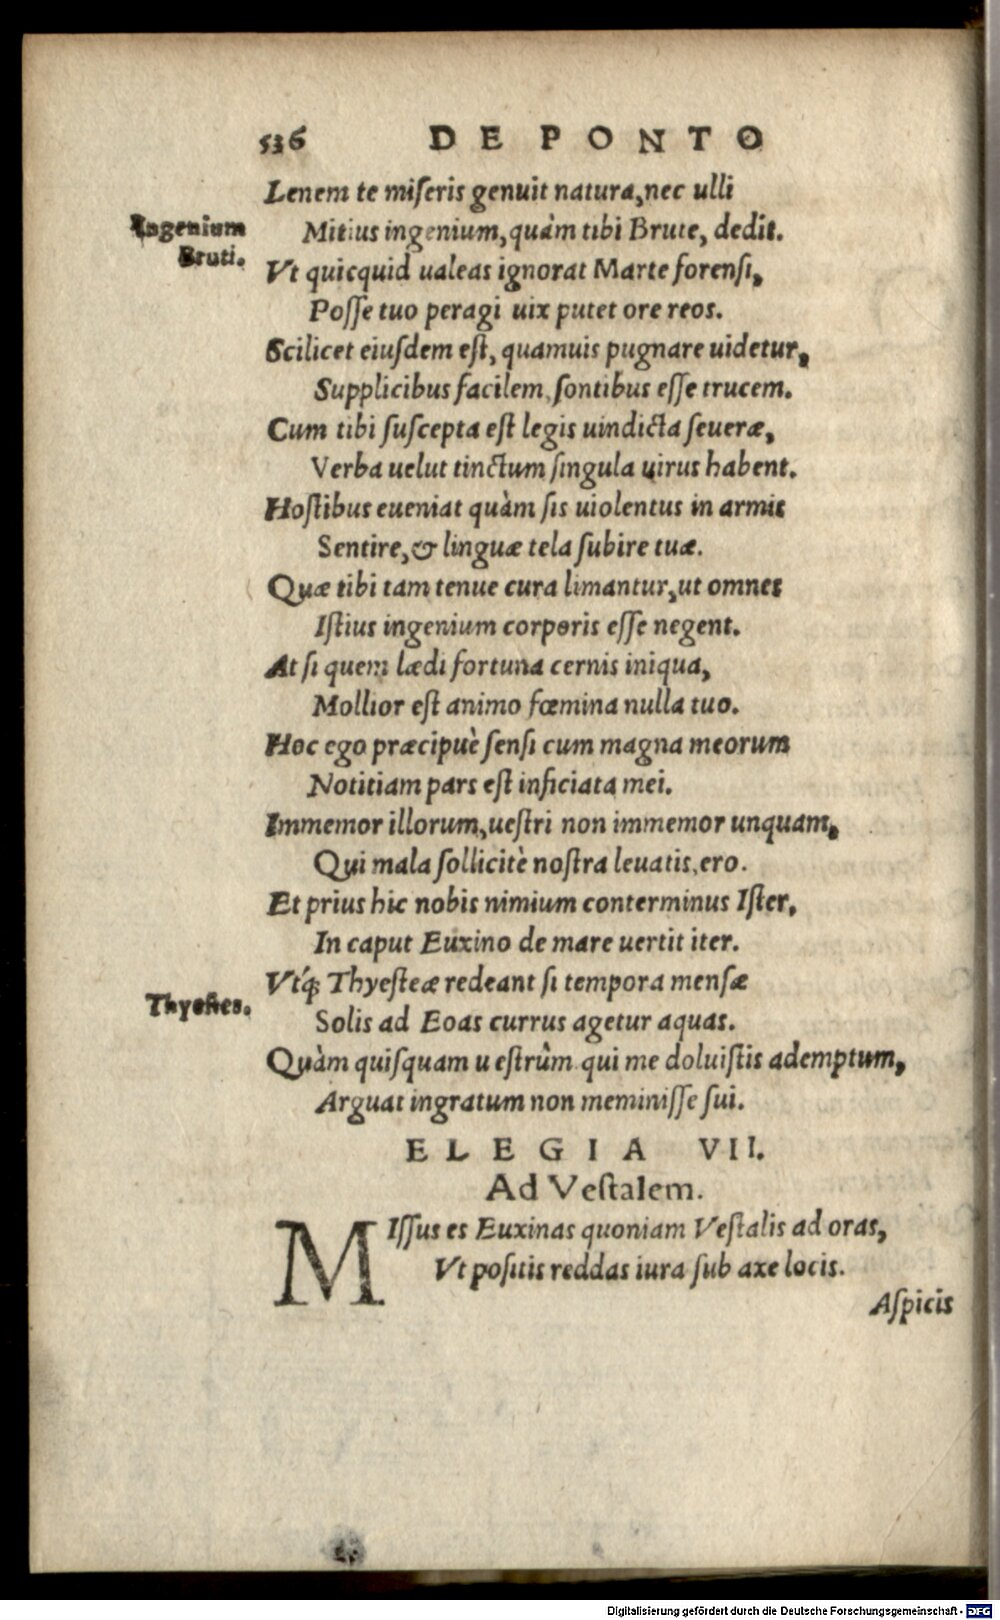 536 DE PONTO
Lenem te miſeris genuit natura, nec ulli
Ingenium
Mitius ingenium, quàm tibi Brute, dedit.
Bruti.
Vt quicquid ualeas ignorat Marte forenſi,
Poſſe tuo peragi uix putet ore reos.
Scilicet eiuſdem eſt, quamuis pugnare uidetur,
Supplicibus facilem, ſontibus eſſe trucem.
Cum tibi ſuſcepta eſt legis uindicta ſeueræ,
Verba uelut tinctum ſingula uirus habent.
Hoſtibus eueniat quàm ſis uiolentus in armis
Sentire, & linguæ tela ſubire tuæ.
Quæ tibi tam tenue cura limantur, ut omnes
Iſtius ingenium corporis eſſe negent.
At ſi quem lædi fortuna cernis iniqua,
Mollior eſt animo fœmina nulla tuo.
Hoc ego præcipuè ſenſi cum magna meorum
Notitiam pars eſt inficiata mei.
Immemor illorum, ueſtri non immemor unquam,
Qui mala ſollicitè noſtra leuatis, ero.
Et prius hic nobis nimium conterminus Iſter,
In caput Euxino de mare uertit iter.
Vtq́; Thyeſteæ redeant ſi tempora menſæ
Thyeſtes.
Solis ad Eoas currus agetur aquas.
Quàm quiſquam u eſtrûm qui me doluiſtis ademptum,
Arguat ingratum non meminiſſe ſui.
ELEGIA VII.
Ad Veſtalem.
MIſſus es Euxinas quoniam Veſtalis ad oras,
Vt poſitis reddas iura ſub axe locis.
Aſpicis
Digitalisierung gefördert durch die Deutsche Forschungsgemeinschaft - DFG